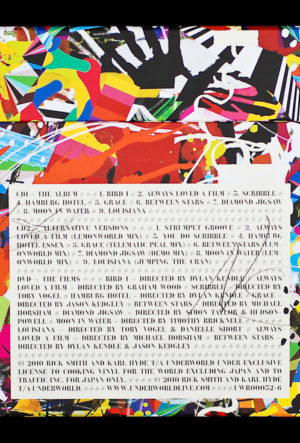 CD1 – THE ALBUM – # # # 1. BIRD 1 # 2. ALWAYS
LOVED A FILM # 3. SCRIBBLE #
4. HAMBURG HOTEL # 5. GRACE # 6. BETWEEN STARS # 7. DIAMOND JIGSAW
# 8. MOON IN WATER # 9. LOUISIANA
CD2 – ALTERNATIVE VERSIONS – 1. STRUMPET GROOVE # 2. ALWAYS
LOVED A FILM (LEMONWORLD MIX) # 3. YOU DO SCRIBBLE # 4. HAMBURG
HOTEL ESSEX # 5. GRACE (TELEMATIC PEAL MIX) # 6. BETWEEN STARS (LEM-
ONWORLD MIX) # 7. DIAMOND JIGSAW (DEMO MIX) # 8. MOON IN WATER (LEM-
ONWORLD MIX) # 9. LOUISIANA (JUMPING THE CRAN)
DVD – THE FILMS – BIRD 1 – DIRECTED BY DYLAN KENDLE # ALWAYS
LOVED A FILM – DIRECTED BY GRAHAM WOOD # SCRIBBLE – DIRECTED BY
TOBY VOGEL # HAMBURG HOTEL – DIRECTED BY DYLAN KENDLE # GRACE –
DIRECTED BY JASON KEDGLEY # BETWEEN STARS – DIRECTED BY MICHAEL
HORSHAM # DIAMOND JIGSAW – DIRECTED BY SIMON TAYLOR & HUDSON-
POWELL # MOON IN WATER – DIRECTED BY TIMOTHY BRICKNELL #
LOUISIANA – DIRECTED BY TOBY VOGEL & DANIELLE SHORT # ALWAYS
LOVED A FILM – DIRECTED BY MICHAEL HORSHAM # BETWEEN STARS –
DIRECTED BY DYLAN KENDLE & JASON KEDGLEY #
℗ 2010 RICK SMITH AND KARL HYDE T/A UNDERWORLD UNDER EXCLUSIVE
LICENSE TO COOKING VINYL FOR THE WORLD EXCLUDING JAPAN AND TO
TRAFFIC INC. FOR JAPAN ONLY. # # # # © 2010 RICK SMITH AND KARL HYDE
T/A UNDERWORLD. WWW.UNDERWORLDLIVE.COM UWR00032-6